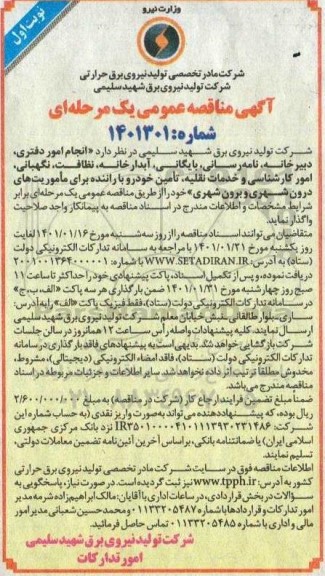 وزارت نیرو
نوبت اول
شرکت مادر تخصصی تولید نیروی برق حرارتی
شرکت تولید نیروی برق شهید سلیمی
آگهی مناقصه عمومی یک مرحله‌ای
شماره: ۱۴۰۱۳۰۱
شرکت تولید نیروی برق شهید سلیمی در نظر دارد «انجام امور دفتری،
دبیرخانه، نامه‌رسانی، بایگانی، آبدارخانه، نظافت، نگهبانی،
امور کارشناسی و خدمات نقلیه، تأمین خودرو با راننده برای مأموریت‌های
درون شهری و برون شهری» خود را از طریق مناقصه عمومی یک مرحله‌ای برابر
شرایط مشخصات و اطلاعات مندرج در اسناد مناقصه به پیمانکار واجد صلاحیت
واگذار نماید.
متقاضیان می‌توانند اسناد مناقصه را از روز سه‌شنبه مورخ ۱۴۰۱/۰۱/۱۶ لغایت
روز یکشنبه مورخ ۱۴۰۱/۰۱/۲۱ با مراجعه به سامانه تدارکات الکترونیکی دولت
(ستاد) به آدرس: WWW.SETADIRAN.IR با شماره: ۲۰۰۱۰۰۱۳۶۴۰۰۰۰۰۱
دریافت نموده، و پس از تکمیل اسناد، پاکت پیشنهادی خود را حداکثر تا ساعت ۱۱
صبح روز چهارشنبه مورخ ۱۴۰۱/۰۱/۳۱ ضمن بارگذاری هر سه پاکت «الف، ب، ج»
در سامانه تدارکات الکترونیکی دولت (ستاد)، فقط فیزیک پاکت «الف» را به آدرس:
ساری، بلوار طالقانی، نبش خیابان معلم شرکت تولید نیروی برق شهید سلیمی
ارسال نمایند، کلیه پیشنهادات واصله رأس ساعت ۱۲ همانروز در سالن جلسات
شرکت بازگشایی خواهد شد. بدیهی است به پیشنهادهای فاقد بارگذاری در سامانه
تدارکات الکترونیکی دولت (ستاد)، فاقد امضاء الکترونیکی (دیجیتالی)، مشروط،
مخدوش مطلقا ترتیب اثر داده نخواهد شد. سایر اطلاعات و جزئیات مربوطه در اسناد
مناقصه مندرج می‌باشد.
ضمنا مبلغ تضمین فرایند ارجاع کار (شرکت در مناقصه) به مبلغ ۲/۶۰۰/۰۰۰/۰۰۰
ریال بوده، که پیشنهاددهنده می‌تواند بصورت واریز نقدی (به حساب شماره این
شرکت: IR۳۵۰۱۰۰۰۰۴۱۰۱۱۱۳۹۳۰۲۳۱۴۸۶ نزد بانک مرکزی جمهوری
اسلامی ایران) یا ضمانتنامه بانکی، براساس آخرین آئین‌نامه تضمین معاملات دولتی،
تسلیم نمایند.
اطلاعات مناقصه فوق در سایت شرکت مادر تخصصی تولید نیروی برق حرارتی
کشور به آدرس: www.tpph.ir نیز ثبت گردیده است. در صورت نیاز، پاسخگویی به
سؤالات در بخش قراردادی، در ساعات اداری با آقایان: مالک ابراهیم‌زاده شرمه مدیر
امور تدارکات و قراردادها با شماره ۰۱۱۳۳۲۰۵۴۸۷ و محمدحسین شعبانی مدیر امور
مالی و اداری با شماره ۰۱۱۳۳۲۰۵۴۸۵ تماس حاصل فرمائید.
شرکت تولید نیروی برق شهید سلیمی
امور تدارکات